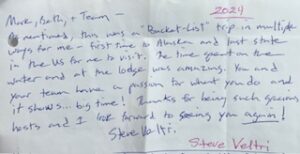 2024
Mark, Beth, + Team -
As mentioned, this was a "Bucket-List" trip in multiple
ways for me - first time to Alaska and last state
in the US for me to visit. The time spent on the
water and at the lodge was amazing. You and
your team have a passion for what you do and
it shows... big time! Thanks for being such gracious
hosts and I look forward to seeing you again!
Steve Veltri.
Steve Veltri